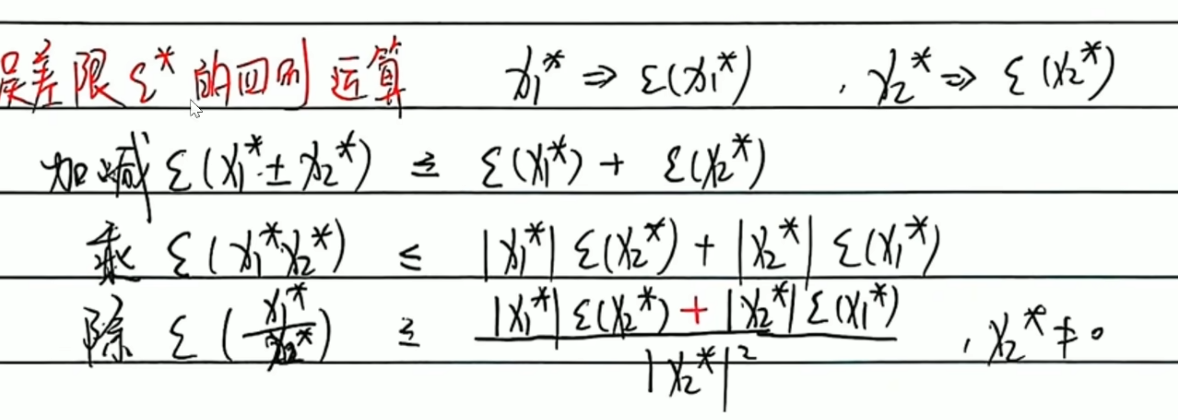 误差限 ε* 的四则运算 x₁* ⇒ ε(x₁*) , x₂* ⇒ ε(x₂*)
加减 ε(x₁* ± x₂*) ≤ ε(x₁*) + ε(x₂*)
乘 ε(x₁*x₂*) ≤ |x₁*| ε(x₂*) + |x₂*| ε(x₁*)
除 ε(x₁*/x₂*) ≤ (|x₁*| ε(x₂*) + |x₂*| ε(x₁*))/|x₂*|² , x₂* ≠ 0